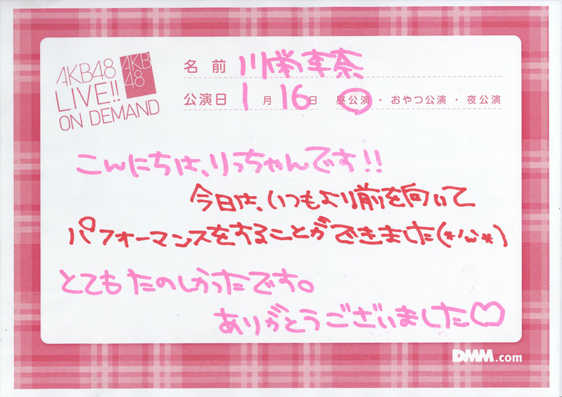 AKB48
LIVE!!
ON DEMAND
AKB
48
名前 川栄李奈
公演日 1月16日 昼公演・おやつ公演・夜公演
こんにちは、りっちゃんです!!
今日は、いつもより前を向いて
パフォーマンスをすることができました(*'ω'*)
とてもたのしかったです。
ありがとうございました♡
DMM.com